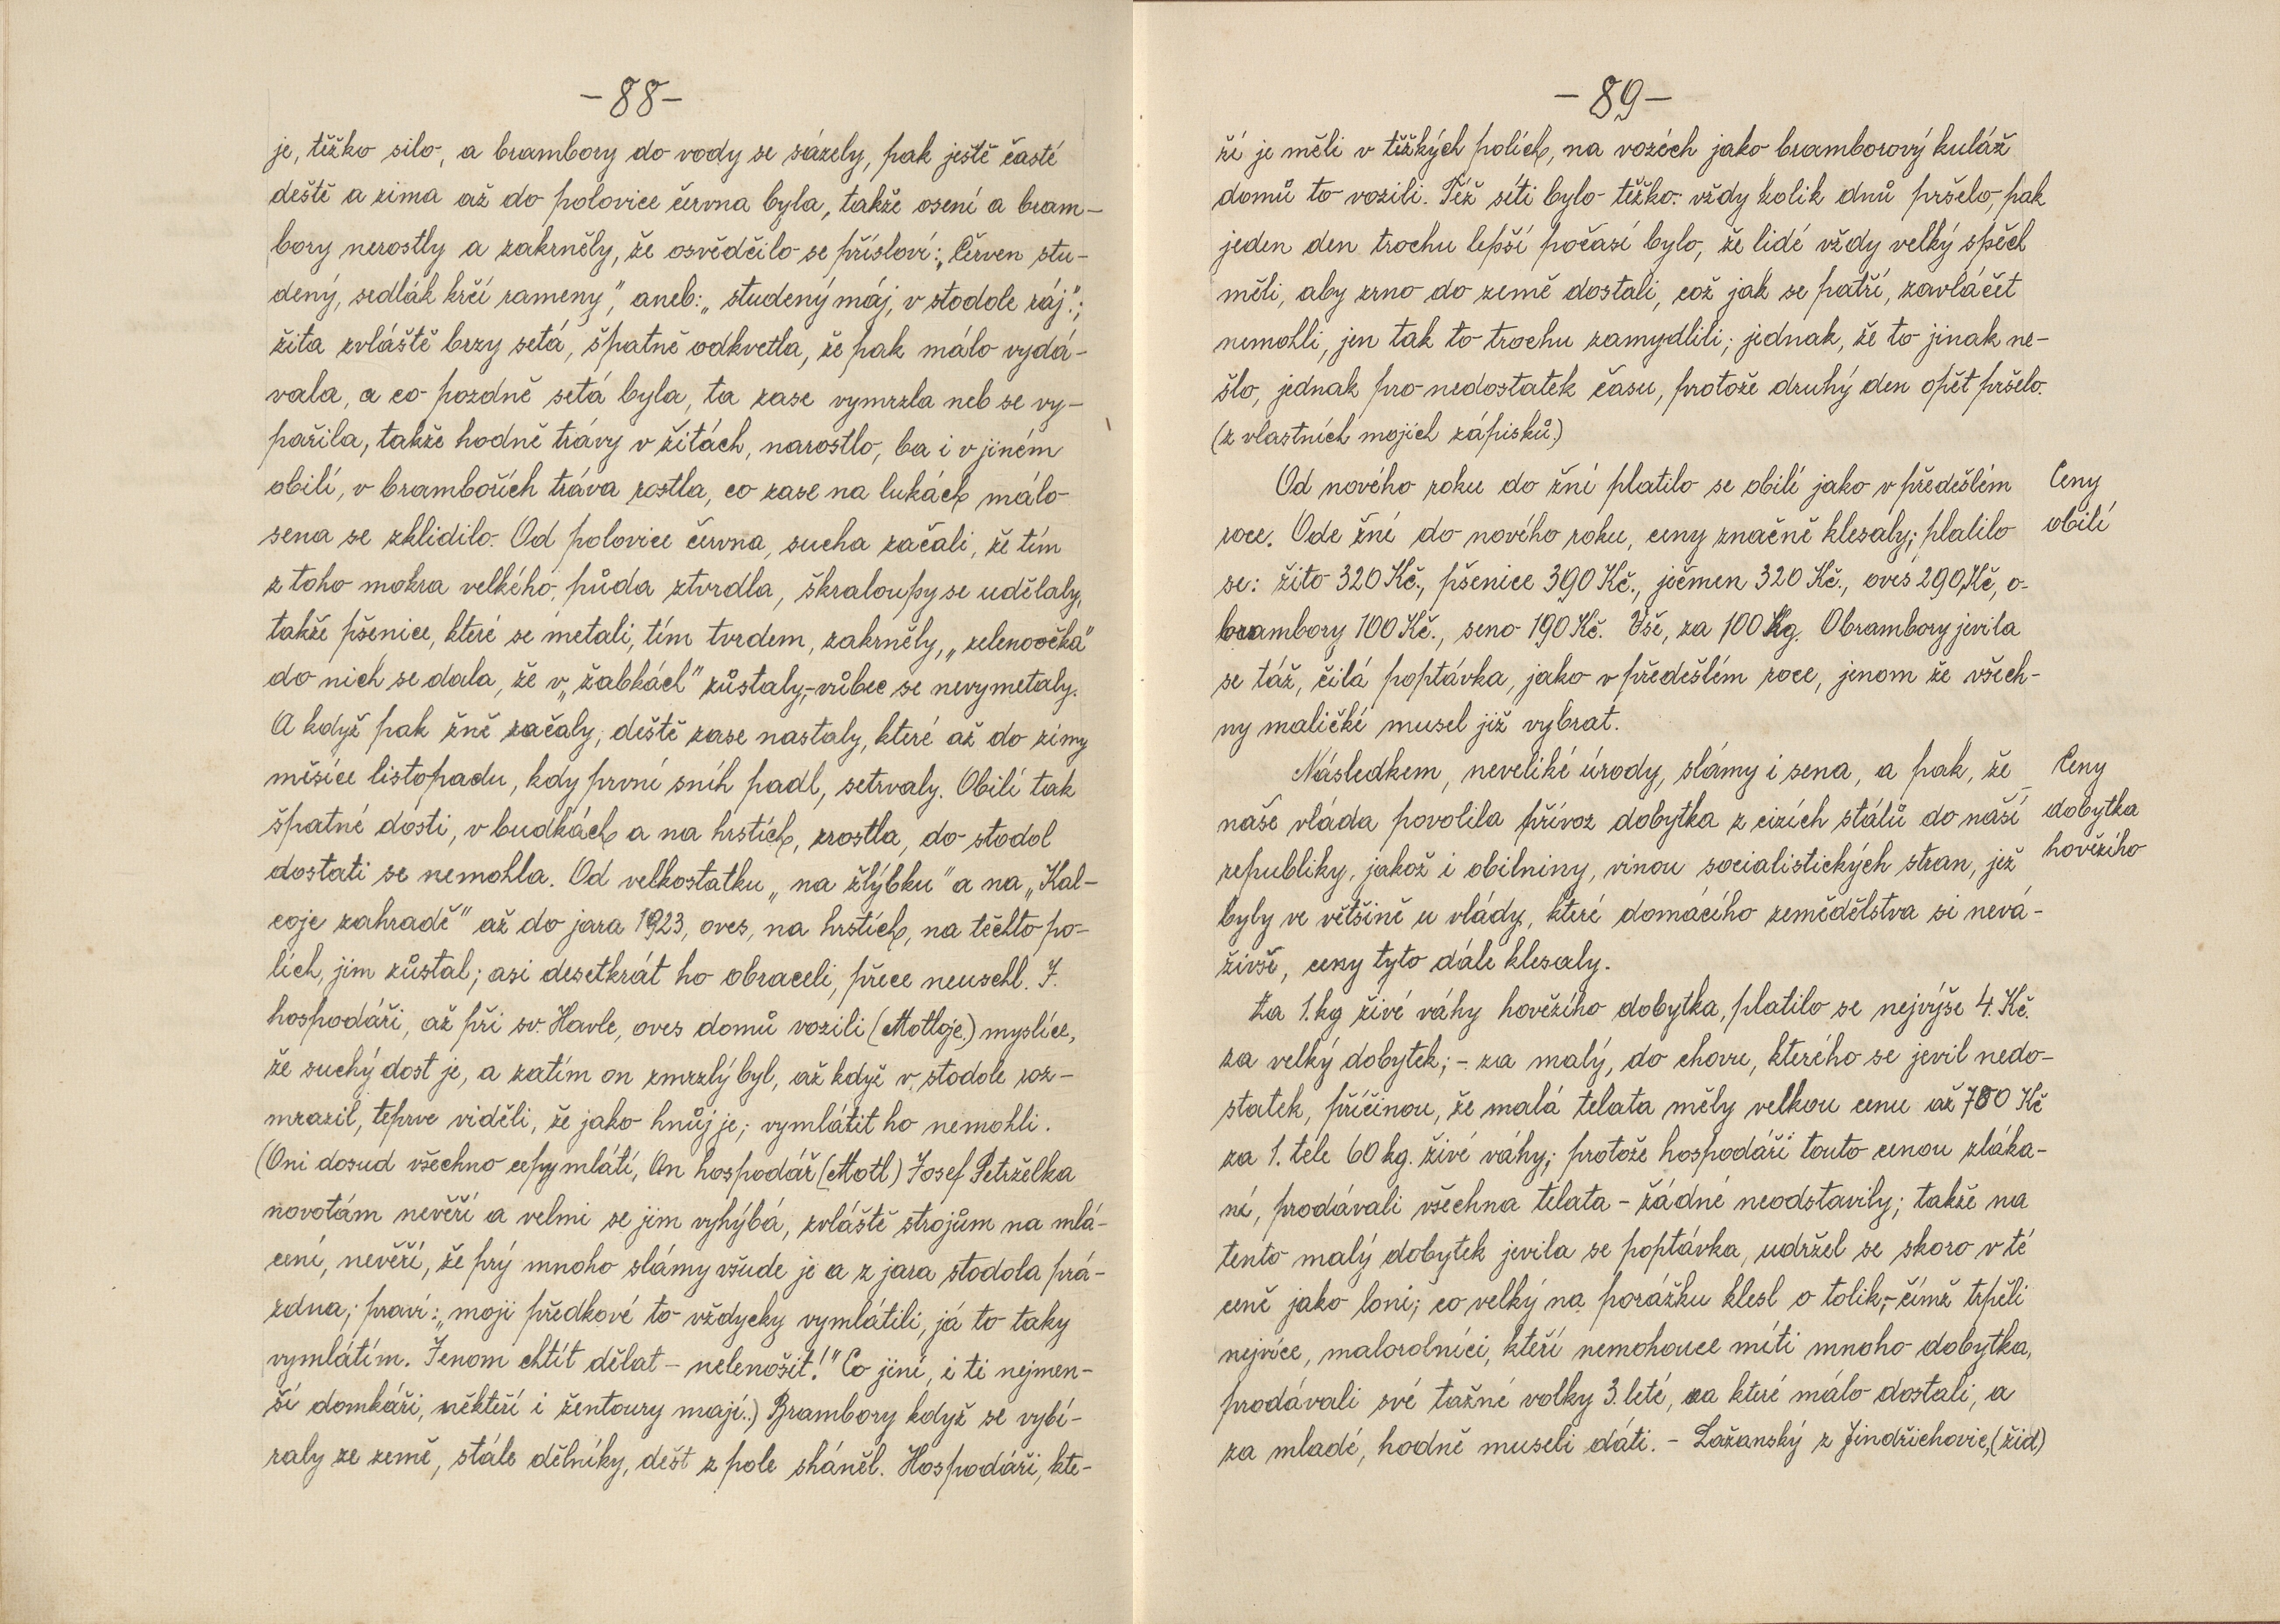 -88-
je, těžko silo, a brambory do vody se sázely, pak ještě časté
deště a zima až do polovice června byla, takže osení a bram-
bory nerostly a zakrněly, že osvědčilo se přísloví: „Červen stu-
dený, sedlák krčí rameny", aneb: „studený máj, v stodole ráj";
žita zvláště brzy setá, špatně odkvetla, že pak málo vydá-
vala, a co pozdně setá byla, ta zase vymrzla neb se vy-
pařila, takže hodně trávy v žitách, narostlo, ba i v jiném
obilí, v bramborích tráva rostla, co zase na lukách málo
sena se zklidilo. Od polovice června, sucha začali, že tím
z toho mokra velkého, půda ztvrdla, škraloupy se udělaly,
takže pšenice, které se metali, tím tvrdem, zakrněly, „zelenoočka"
do nich se dala, že v „žabkách" zůstaly,-vůbec se nevymetaly.
A když pak žně začaly, deště zase nastaly, které až do zimy
měsíce listopadu, kdy první sníh padl, setrvaly. Obilí tak
špatné dosti, v budkách a na hrstích, zrostla, do stodol
dostati se nemohla. Od velkostatku „na žlýbku" a na „Kal-
coje zahradě" až do jara 1923, oves, na hrstích, na těchto po-
lích, jim zůstal; asi desetkrát ho obraceli, přece neuschl. J.
hospodáři, až při sv. Havle, oves domů vozili (Motloje.) myslíce,
že suchý dost je, a zatím on zmrzlý byl, až když v stodole roz-
mrazil, teprve viděli, že jako hnůj je; vymlátit ho nemohli.
(Oni dosud všechno cepy mlátí, On hospodář (Motl) Josef Petrželka
novotám nevěří a velmi se jim vyhýbá, zvláště strojům na mlá-
cení, nevěří, že prý mnoho slámy všude je a z jara stodola prá-
zdna; praví: „moji předkové to vždycky vymlátili, já to taky
vymlátím. Jenom chtít dělat - nelenošit!" Co jiní, i ti nejmen-
ší domkáři, někteří i žentoury mají.) Brambory když se vybí-
raly ze země, stále dělníky, déšt z pole sháněl. Hospodáři, kte-
-89-
ří je měli v těžkých polích, na vozech jako bramborový kuláž
domů to vozili. Též síti bylo těžko: vždy kolik dnů pršelo, pak
jeden den trochu lepší počasí bylo, že lidé vždy velký spěch
měli, aby zrno do země dostali, což jak se patří, zavláčet
nemohli, jen tak to trochu zamydlili; jednak, že to jinak ne-
šlo, jednak pro nedostatek času, protože druhý den opět pršelo.
(z vlastních mojích zápisků.)
Ceny
obilí
Od nového roku do žní platilo se obilí jako v předešlém
roce. Ode žně do nového roku, ceny značně klesaly; platilo
se: žito 320 Kč., pšenice 390 Kč., ječmen 320 Kč., oves 290 Kč, o-
brambory 100 Kč., seno 190 Kč. Vše, za 100 Kg. Obrambory jevila
se táž, čilá poptávka, jako v předešlém roce, jenom že všech-
ny maličké musel již vybrat.
Ceny
dobytka
hovězího
Následkem, neveliké úrody, slámy i sena, a pak, že
naše vláda povolila přívoz dobytka z cizích států do naší
republiky, jakož i obilniny, vinou socialistických stran, již
byly ve většině u vlády, které domácího zemědělstva si nevá-
živše, ceny tyto dále klesaly.
Za 1. kg živé váhy hovězího dobytka, platilo se nejvýše 4. Kč.
za velký dobytek; - za malý, do chovu, kterého se jevil nedo-
statek, příčinou, že malá telata měly velkou cenu až 780 Kč
za 1. tele 60 kg. živé váhy; protože hospodáři touto cenou zláka-
ní, prodávali všechna telata - žádné neodstavily; takže na
tento malý dobytek jevila se poptávka, udržel se skoro v té
ceně jako loni; co velký na porážku klesl o tolik,-čímž trpěli
nejvíce, malorolníci, kteří nemohouce míti mnoho dobytka,
prodávali své tažné volky 3. leté, za které málo dostali, a
za mladé, hodně museli dáti. - Lažanský z Jindřichovic, (žid)